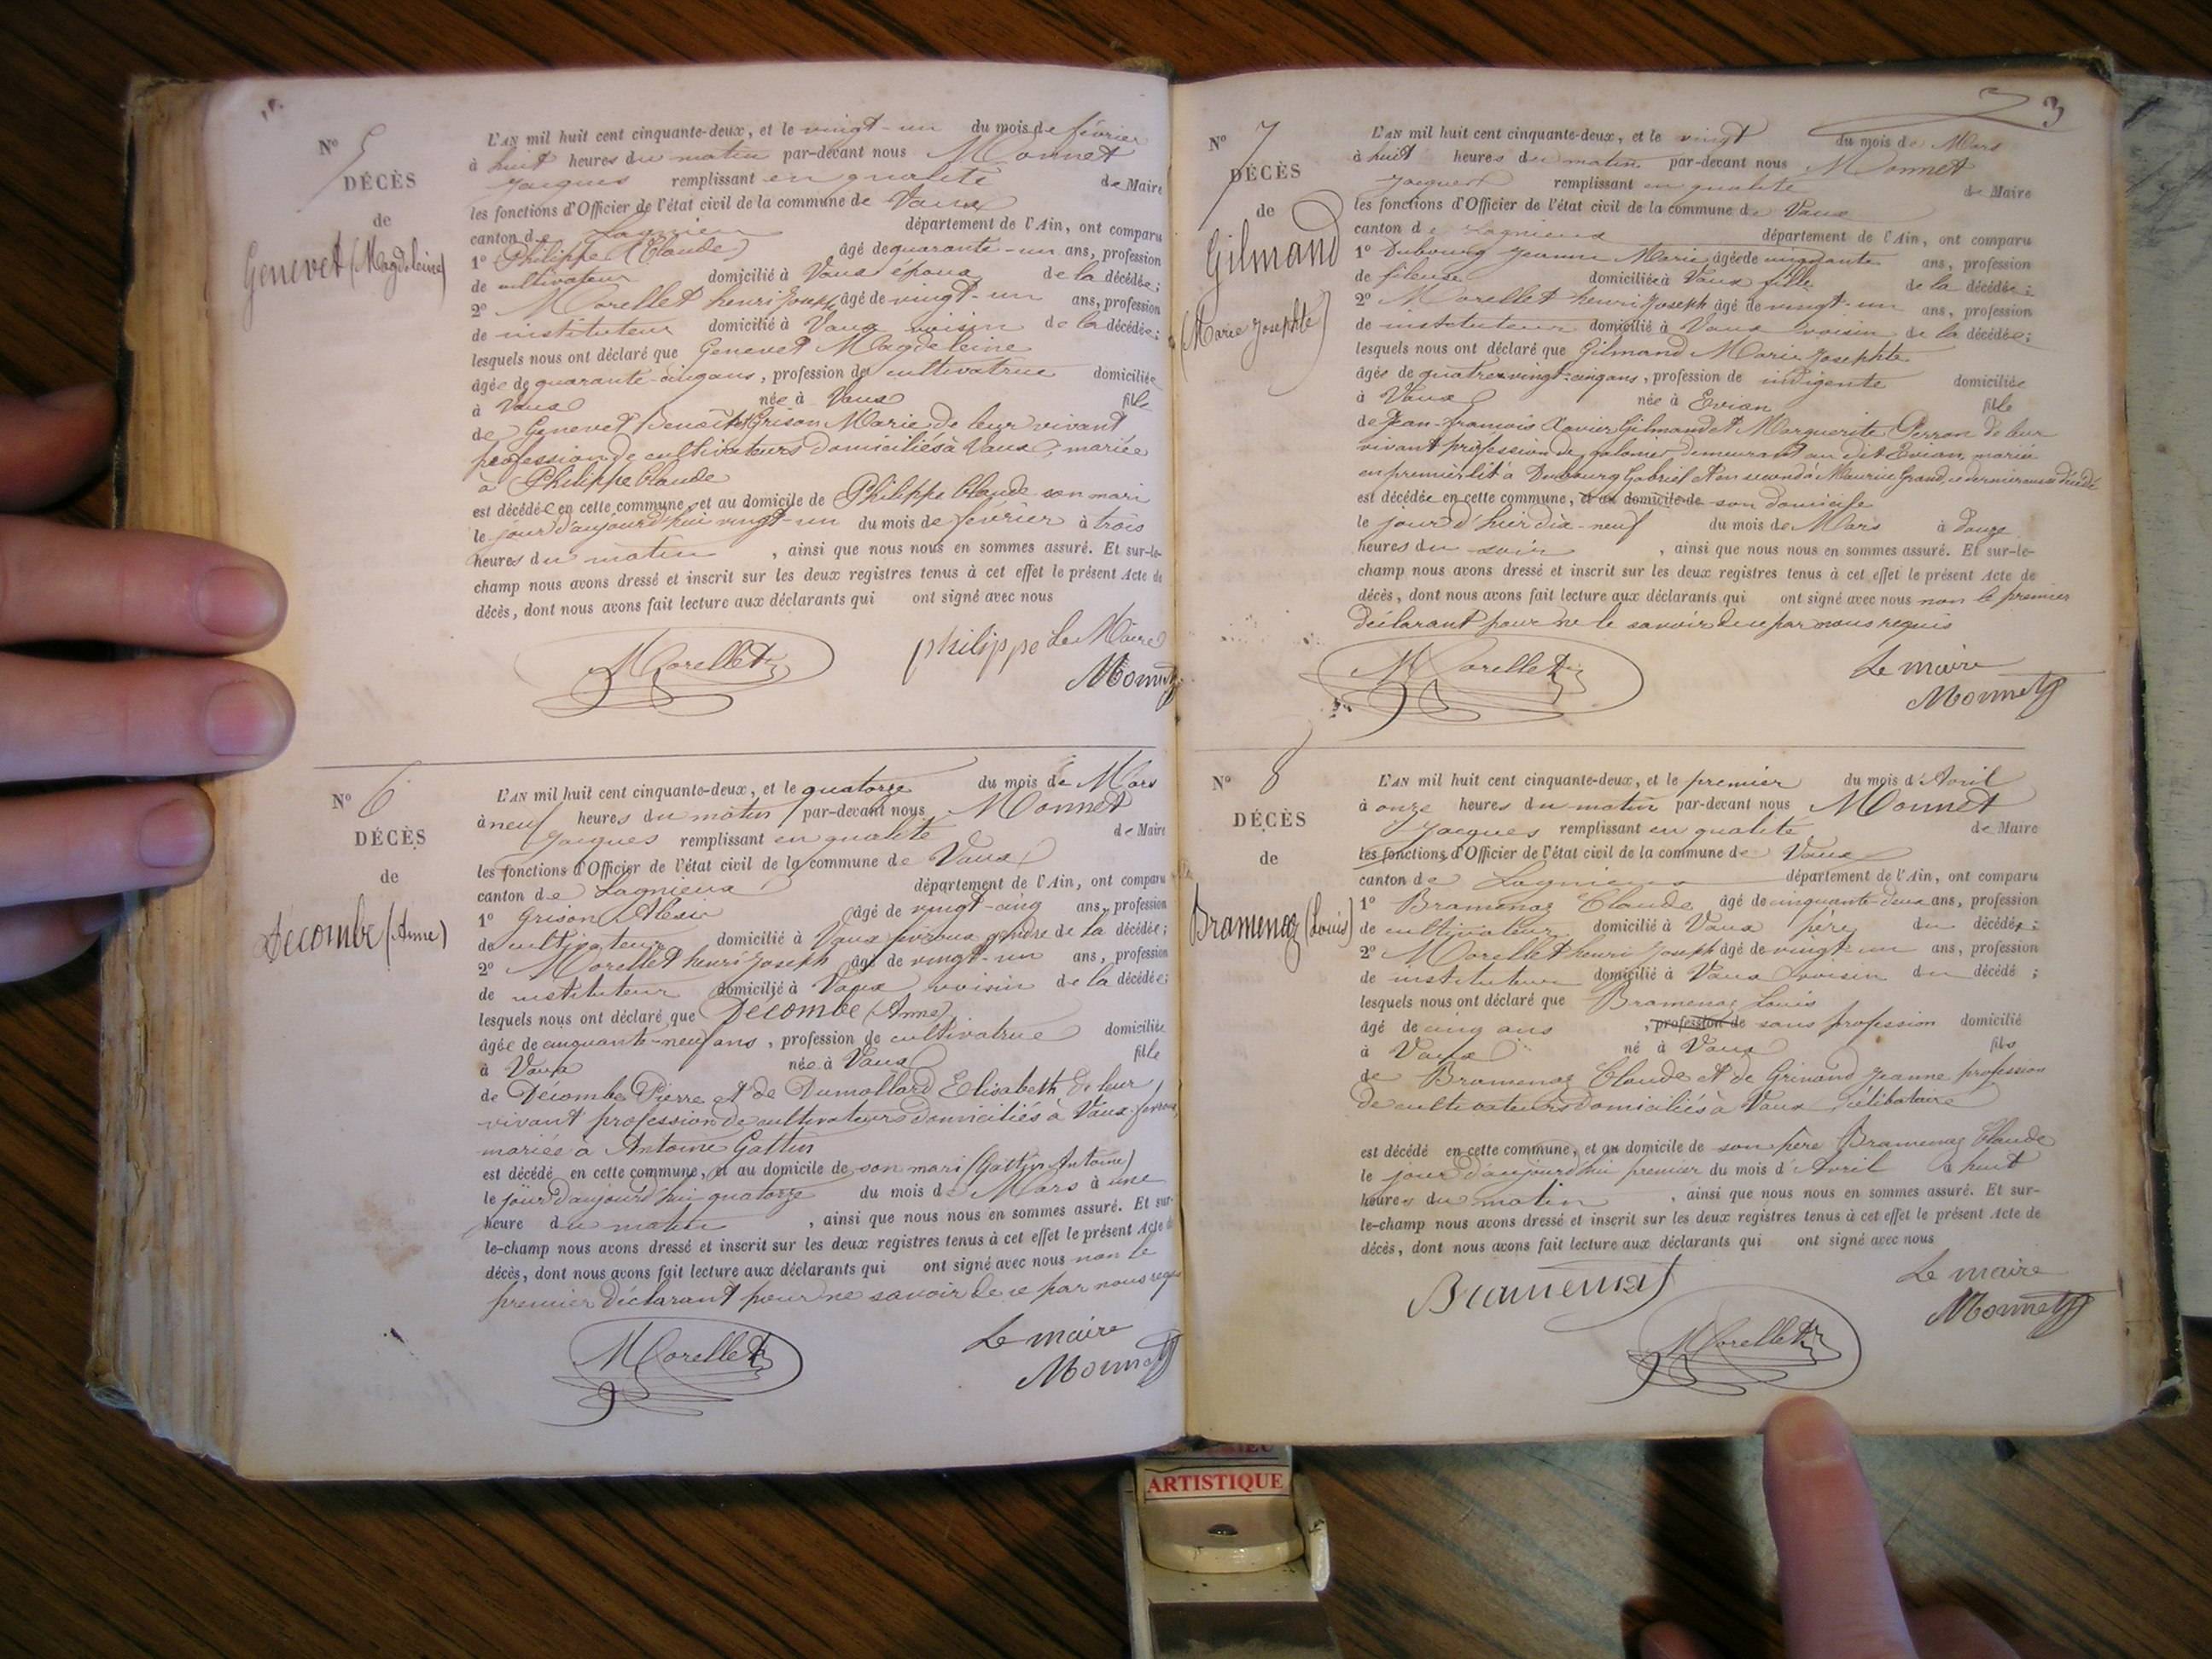 N° 5
DÉCÈS
de
Genevet (Magdeleine)
L'AN mil huit cent cinquante-deux, et le vingt-un du mois de février
à huit heures du matin par-devant nous Monnet
Jacques remplissant en qualité de Maire
les fonctions d'Officier de l'état civil de la commune de Vaux
canton de Lagnieu département de l'Ain, ont comparu
1° Philippe (Claude) âgé de quarante-un ans, profession
de cultivateur domicilié à Vaux époux de la décédée;
2° Morellet henri Joseph âgé de vingt-un ans, profession
de instituteur domicilié à Vaux voisin de la décédée;
lesquels nous ont déclaré que Genevet Magdeleine
âgée de quarante-cinq ans, profession de cultivatrice domiciliée
à Vaux née à Vaux fille
de Genevet Benoit et Grison Marie de leur vivant
profession de cultivateurs domiciliés à Vaux, mariée
à Philippe Claude
est décédée en cette commune, et au domicile de Philippe Claude son mari
le jour d'aujourd'hui vingt-un du mois de février à trois
heures du matin, ainsi que nous nous en sommes assuré. Et sur-le-
champ nous avons dressé et inscrit sur les deux registres tenus à cet effet le présent Acte de
décès, dont nous avons fait lecture aux déclarants qui ont signé avec nous
Morellet philippe Le Maire
Monnet
N° 6
DÉCÈS
de
Decombe (Anne)
L'AN mil huit cent cinquante-deux, et le quatorze du mois de Mars
à neuf heures du matin par-devant nous Monnet
Jacques remplissant en qualité de Maire
les fonctions d'Officier de l'état civil de la commune de Vaux
canton de Lagnieux département de l'Ain, ont comparu
1° Grison Alexis âgé de vingt-cinq ans, profession
de cultivateur domicilié à Vaux gendre de la décédée;
2° Morellet henri Joseph âgé de vingt-un ans, profession
de instituteur domicilié à Vaux voisin de la décédée;
lesquels nous ont déclaré que Décombe (Anne)
âgée de cinquante-neuf ans, profession de cultivatrice domiciliée
à Vaux née à Vaux fille
de Décombe Pierre et de Dumollard Elisabeth de leur
vivant profession de cultivateurs domiciliés à Vaux
mariée à Antoine Gattin
est décédé en cette commune, et au domicile de son mari (Gattin Antoine)
le jour d'aujourd'hui quatorze du mois de Mars à une
heure du matin, ainsi que nous nous en sommes assuré. Et sur-
le-champ nous avons dressé et inscrit sur les deux registres tenus à cet effet le présent Acte de
décès, dont nous avons fait lecture aux déclarants qui ont signé avec nous non le
premier déclarant pour ne savoir de ce par nous requis
Morellet Le maire
Monnet
3
N° 7
DÉCÈS
de
Gilmand
(Marie Josephte)
L'AN mil huit cent cinquante-deux, et le vingt du mois de Mars
à huit heures du matin par-devant nous Monnet
Jacques remplissant en qualité de Maire
les fonctions d'Officier de l'état civil de la commune de Vaux
canton de Lagnieux département de l'Ain, ont comparu
1° Dubourg Jeanne Marie âgée de cinquante ans, profession
de fileuse domiciliée à Vaux fille de la décédée;
2° Morellet henri Joseph âgé de vingt-un ans, profession
de instituteur domicilié à Vaux voisin de la décédée;
lesquels nous ont déclaré que Gilmand Marie Josephte
âgée de quatre-vingt-cinq ans, profession de indigente domiciliée
à Vaux née à Evian fille
de Jean-françois Xavier Gilmand et Marguerite Perron de leur
vivant profession de demeurant au dit Evian, mariée
en premier lit à Dubourg Gabriel et en second à Maurice Grand, ce dernier aussi décédé
est décédée en cette commune, et au domicile de son domicile
le jour d'hier dix-neuf du mois de Mars à douze
heures du soir, ainsi que nous nous en sommes assuré. Et sur-le-
champ nous avons dressé et inscrit sur les deux registres tenus à cet effet le présent Acte de
décès, dont nous avons fait lecture aux déclarants qui ont signé avec nous non le premier
déclarant pour ne le savoir de ce par nous requis
Morellet Le maire
Monnet
N° 8
DÉCÈS
de
Bramenaz (Louis)
L'AN mil huit cent cinquante-deux, et le premier du mois d'Avril
à onze heures du matin par-devant nous Monnet
Jacques remplissant en qualité de Maire
les fonctions d'Officier de l'état civil de la commune de Vaux
canton de Lagnieux département de l'Ain, ont comparu
1° Bramenaz Claude âgé de cinquante-deux ans, profession
de cultivateur domicilié à Vaux père du décédé;
2° Morellet henri Joseph âgé de vingt-un ans, profession
de instituteur domicilié à Vaux voisin du décédé;
lesquels nous ont déclaré que Bramenaz Louis
âgé de cinq ans, profession de sans profession domicilié
à Vaux né à Vaux fils
de Bramenaz Claude et de Grinand Jeanne profession
de cultivateurs domiciliés à Vaux célibataire
est décédé en cette commune, et au domicile de son père Bramenaz Claude
le jour d'aujourd'hui premier du mois d'Avril à huit
heures du matin, ainsi que nous nous en sommes assuré. Et sur-
le-champ nous avons dressé et inscrit sur les deux registres tenus à cet effet le présent Acte de
décès, dont nous avons fait lecture aux déclarants qui ont signé avec nous
Bramenaz Le maire
Morellet Monnet
ARTISTIQUE